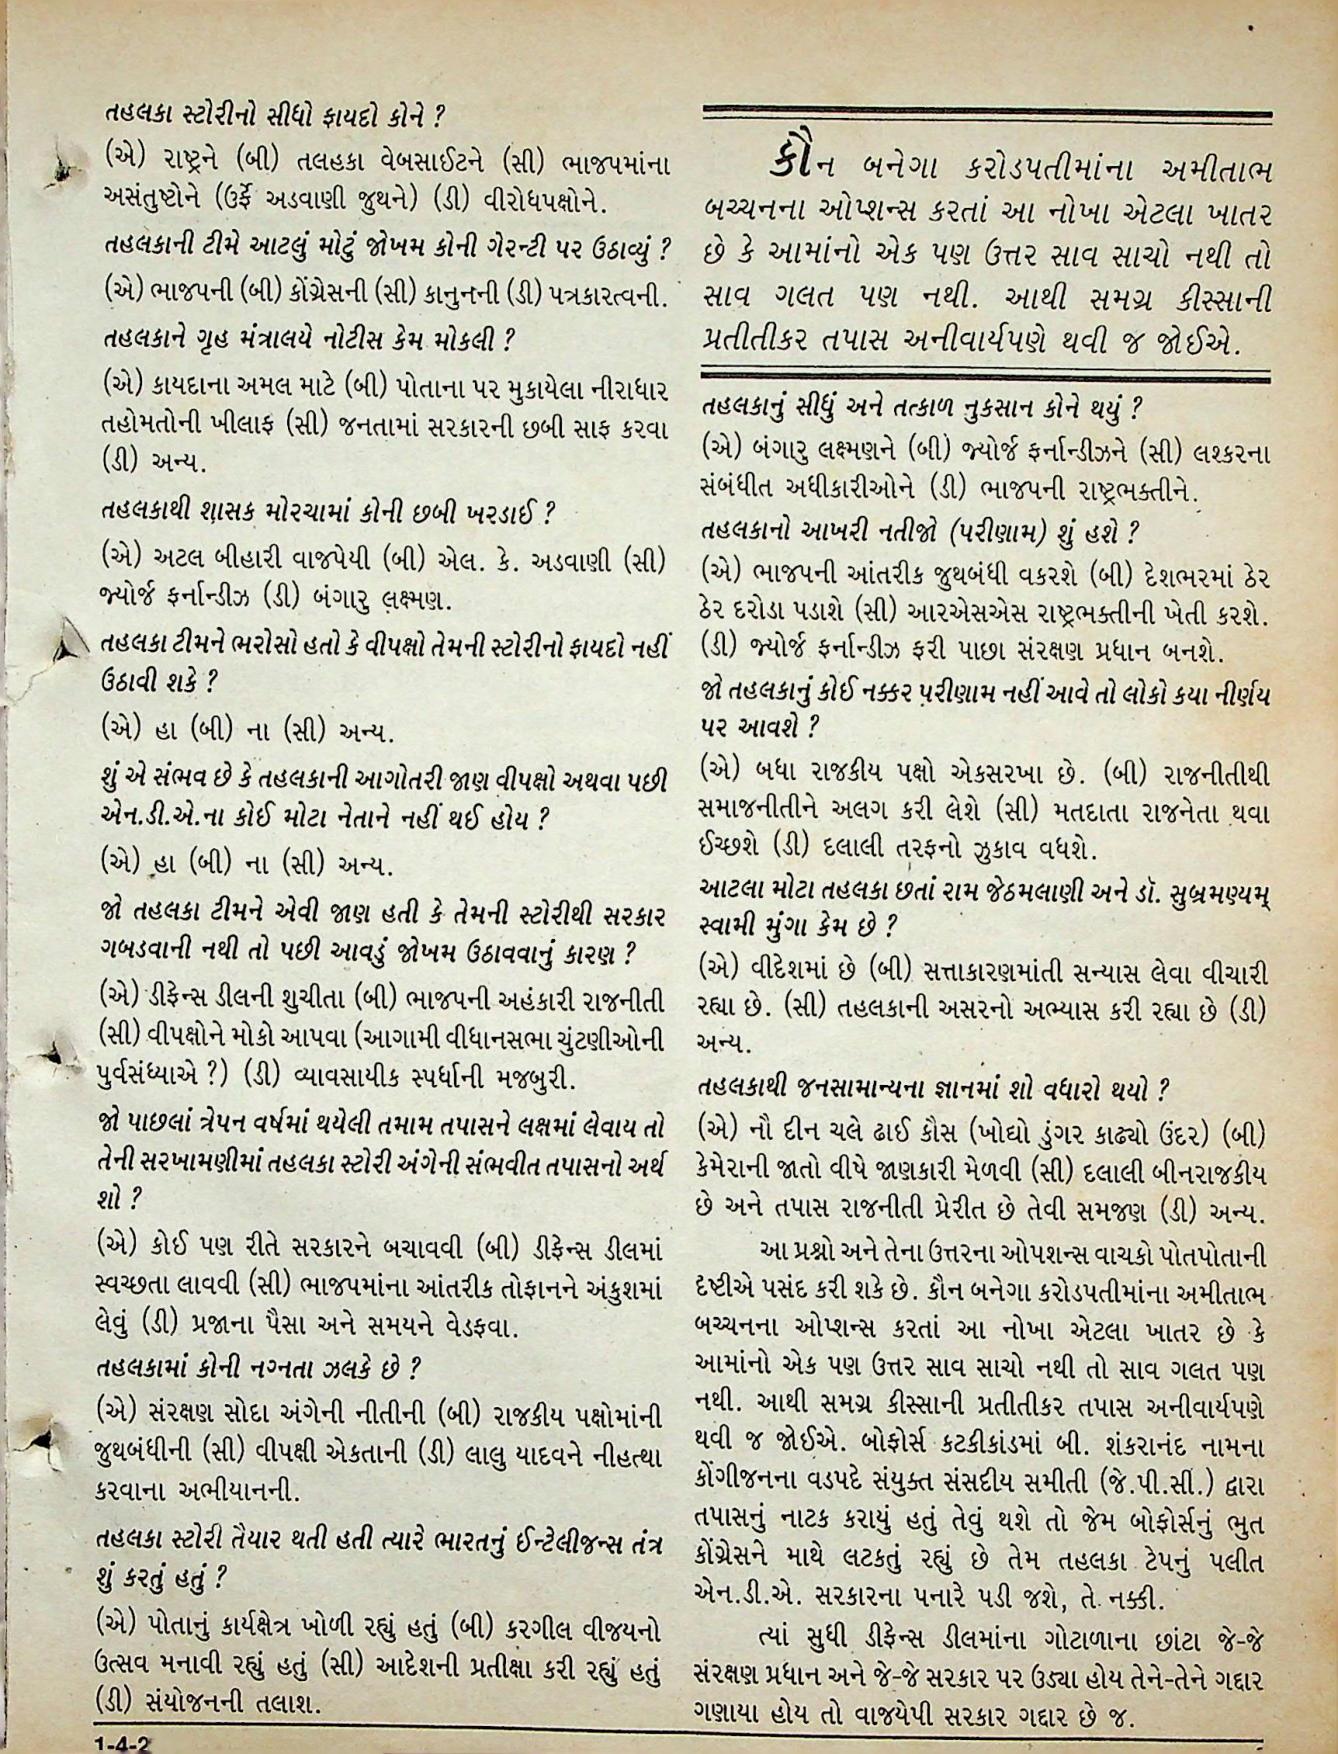 તહલકા સ્ટોરીનો સીધો ફાયદો કોને ?
(એ) રાષ્ટ્રને (બી) તલહકા વેબસાઈટને (સી) ભાજપમાંના
અસંતુષ્ટોને (ઉર્ફે અડવાણી જુથને) (ડી) વીરોધપક્ષોને.
તહલકાની ટીમે આટલું મોટું જોખમ કોની ગેરન્ટી પર ઉઠાવ્યું ?
(એ) ભાજપની (બી) કોંગ્રેસની (સી) કાનુનની (ડી) પત્રકારત્વની.
તહલકાને ગૃહ મંત્રાલયે નોટીસ કેમ મોકલી ?
(એ) કાયદાના અમલ માટે (બી) પોતાના પર મુકાયેલા નીરાધાર
તહોમતોની ખીલાફ (સી) જનતામાં સરકારની છબી સાફ કરવા
(ડી) અન્ય.
તહલકાથી શાસક મોરચામાં કોની છબી ખરડાઈ ?
(એ) અટલ બીહારી વાજપેયી (બી) એલ. કે. અડવાણી (સી)
જ્યોર્જ ફર્નાન્ડીઝ (ડી) બંગારુ લક્ષ્મણ.
તહલકા ટીમને ભરોસો હતો કે વીપક્ષો તેમની સ્ટોરીનો ફાયદો નહીં
ઉઠાવી શકે ?
(એ) હા (બી) ના (સી) અન્ય.
શું એ સંભવ છે કે તહલકાની આગોતરી જાણ વીપક્ષો અથવા પછી
એન.ડી.એ.ના કોઈ મોટા નેતાને નહીં થઈ હોય ?
(એ) હા (બી) ના (સી) અન્ય.
જો તહલકા ટીમને એવી જાણ હતી કે તેમની સ્ટોરીથી સરકાર
ગબડવાની નથી તો પછી આવડું જોખમ ઉઠાવવાનું કારણ ?
(એ) ડીફેન્સ ડીલની શુચીતા (બી) ભાજપની અહંકારી રાજનીતી
(સી) વીપક્ષોને મોકો આપવા (આગામી વીધાનસભા ચુંટણીઓની
પુર્વસંધ્યાએ ?) (ડી) વ્યાવસાયીક સ્પર્ધાની મજબુરી.
જો પાછલાં ત્રેપન વર્ષમાં થયેલી તમામ તપાસને લક્ષમાં લેવાય તો
તેની સરખામણીમાં તહલકા સ્ટોરી અંગેની સંભવીત તપાસનો અર્થ
શો ?
(એ) કોઈ પણ રીતે સરકારને બચાવવી (બી) ડીફેન્સ ડીલમાં
સ્વચ્છતા લાવવી (સી) ભાજપમાંના આંતરીક તોફાનને અંકુશમાં
લેવું (ડી) પ્રજાના પૈસા અને સમયને વેડફવા.
તહલકામાં કોની નગ્નતા ઝલકે છે ?
(એ) સંરક્ષણ સોદા અંગેની નીતીની (બી) રાજકીય પક્ષોમાંની
જુથબંધીની (સી) વીપક્ષી એકતાની (ડી) લાલુ યાદવને નીહત્થા
કરવાના અભીયાનની.
તહલકા સ્ટોરી તૈયાર થતી હતી ત્યારે ભારતનું ઈન્ટેલીજન્સ તંત્ર
શું કરતું હતું ?
(એ) પોતાનું કાર્યક્ષેત્ર ખોળી રહ્યું હતું (બી) કરગીલ વીજયનો
ઉત્સવ મનાવી રહ્યું હતું (સી) આદેશની પ્રતીક્ષા કરી રહ્યું હતું
(ડી) સંયોજનની તલાશ.
1-4-2
કૌન બનેગા કરોડપતીમાંના અમીતાભ
બચ્ચનના ઓપ્શન્સ કરતાં આ નોખા એટલા ખાતર
છે કે આમાંનો એક પણ ઉત્તર સાવ સાચો નથી તો
સાવ ગલત પણ નથી. આથી સમગ્ર કીસ્સાની
પ્રતીતીકર તપાસ અનીવાર્યપણે થવી જ જોઈએ.
તહલકાનું સીધું અને તત્કાળ નુકસાન કોને થયું ?
(એ) બંગારુ લક્ષ્મણને (બી) જ્યોર્જ ફર્નાન્ડીઝને (સી) લશ્કરના
સંબંધીત અધીકારીઓને (ડી) ભાજપની રાષ્ટ્રભક્તીને.
તહલકાનો આખરી નતીજો (પરીણામ) શું હશે ?
(એ) ભાજપની આંતરીક જુથબંધી વકરશે (બી) દેશભરમાં ઠેર
ઠેર દરોડા પડાશે (સી) આરએસએસ રાષ્ટ્રભક્તીની ખેતી કરશે.
(ડી) જ્યોર્જ ફર્નાન્ડીઝ ફરી પાછા સંરક્ષણ પ્રધાન બનશે.
જો તહલકાનું કોઈ નક્કર પરીણામ નહીં આવે તો લોકો કયા નીર્ણય
પર આવશે ?
(એ) બધા રાજકીય પક્ષો એકસરખા છે. (બી) રાજનીતીથી
સમાજનીતીને અલગ કરી લેશે (સી) મતદાતા રાજનેતા થવા
ઈચ્છશે (ડી) દલાલી તરફનો ઝુકાવ વધશે.
આટલા મોટા તહલકા છતાં રામ જેઠમલાણી અને ડૉ. સુબ્રમણ્યમ્
સ્વામી મુંગા કેમ છે ?
(એ) વીદેશમાં છે (બી) સત્તાકારણમાંતી સન્યાસ લેવા વીચારી
રહ્યા છે. (સી) તહલકાની અસરનો અભ્યાસ કરી રહ્યા છે (ડી)
અન્ય.
તહલકાથી જનસામાન્યના જ્ઞાનમાં શો વધારો થયો ?
(એ) નૌ દીન ચલે ઢાઈ કૌસ (ખોદ્યો ડુંગર કાઢ્યો ઉંદર) (બી)
કેમેરાની જાતો વીષે જાણકારી મેળવી (સી) દલાલી બીનરાજકીય
છે અને તપાસ રાજનીતી પ્રેરીત છે તેવી સમજણ (ડી) અન્ય.
આ પ્રશ્નો અને તેના ઉત્તરના ઓપશન્સ વાચકો પોતપોતાની
દૃષ્ટીએ પસંદ કરી શકે છે. કૌન બનેગા કરોડપતીમાંના અમીતાભ
બચ્ચનના ઓપ્શન્સ કરતાં આ નોખા એટલા ખાતર છે કે
આમાંનો એક પણ ઉત્તર સાવ સાચો નથી તો સાવ ગલત પણ
નથી. આથી સમગ્ર કીસ્સાની પ્રતીતીકર તપાસ અનીવાર્યપણે
થવી જ જોઈએ. બોફોર્સ કટકીકાંડમાં બી. શંકરાનંદ નામના
કોંગીજનના વડપદે સંયુક્ત સંસદીય સમીતી (જે.પી.સી.) દ્વારા
તપાસનું નાટક કરાયું હતું તેવું થશે તો જેમ બોફોર્સનું ભુત
કોંગ્રેસને માથે લટકતું રહ્યું છે તેમ તહલકા ટેપનું પલીત
એન.ડી.એ. સરકારના પનારે પડી જશે, તે નક્કી.
ત્યાં સુધી ડીફેન્સ ડીલમાંના ગોટાળાના છાંટા જે-જે
સંરક્ષણ પ્રધાન અને જે-જે સરકાર પર ઉડ્યા હોય તેને-તેને ગદ્દાર
ગણાયા હોય તો વાજયેપી સરકાર ગદ્દાર છે જ.